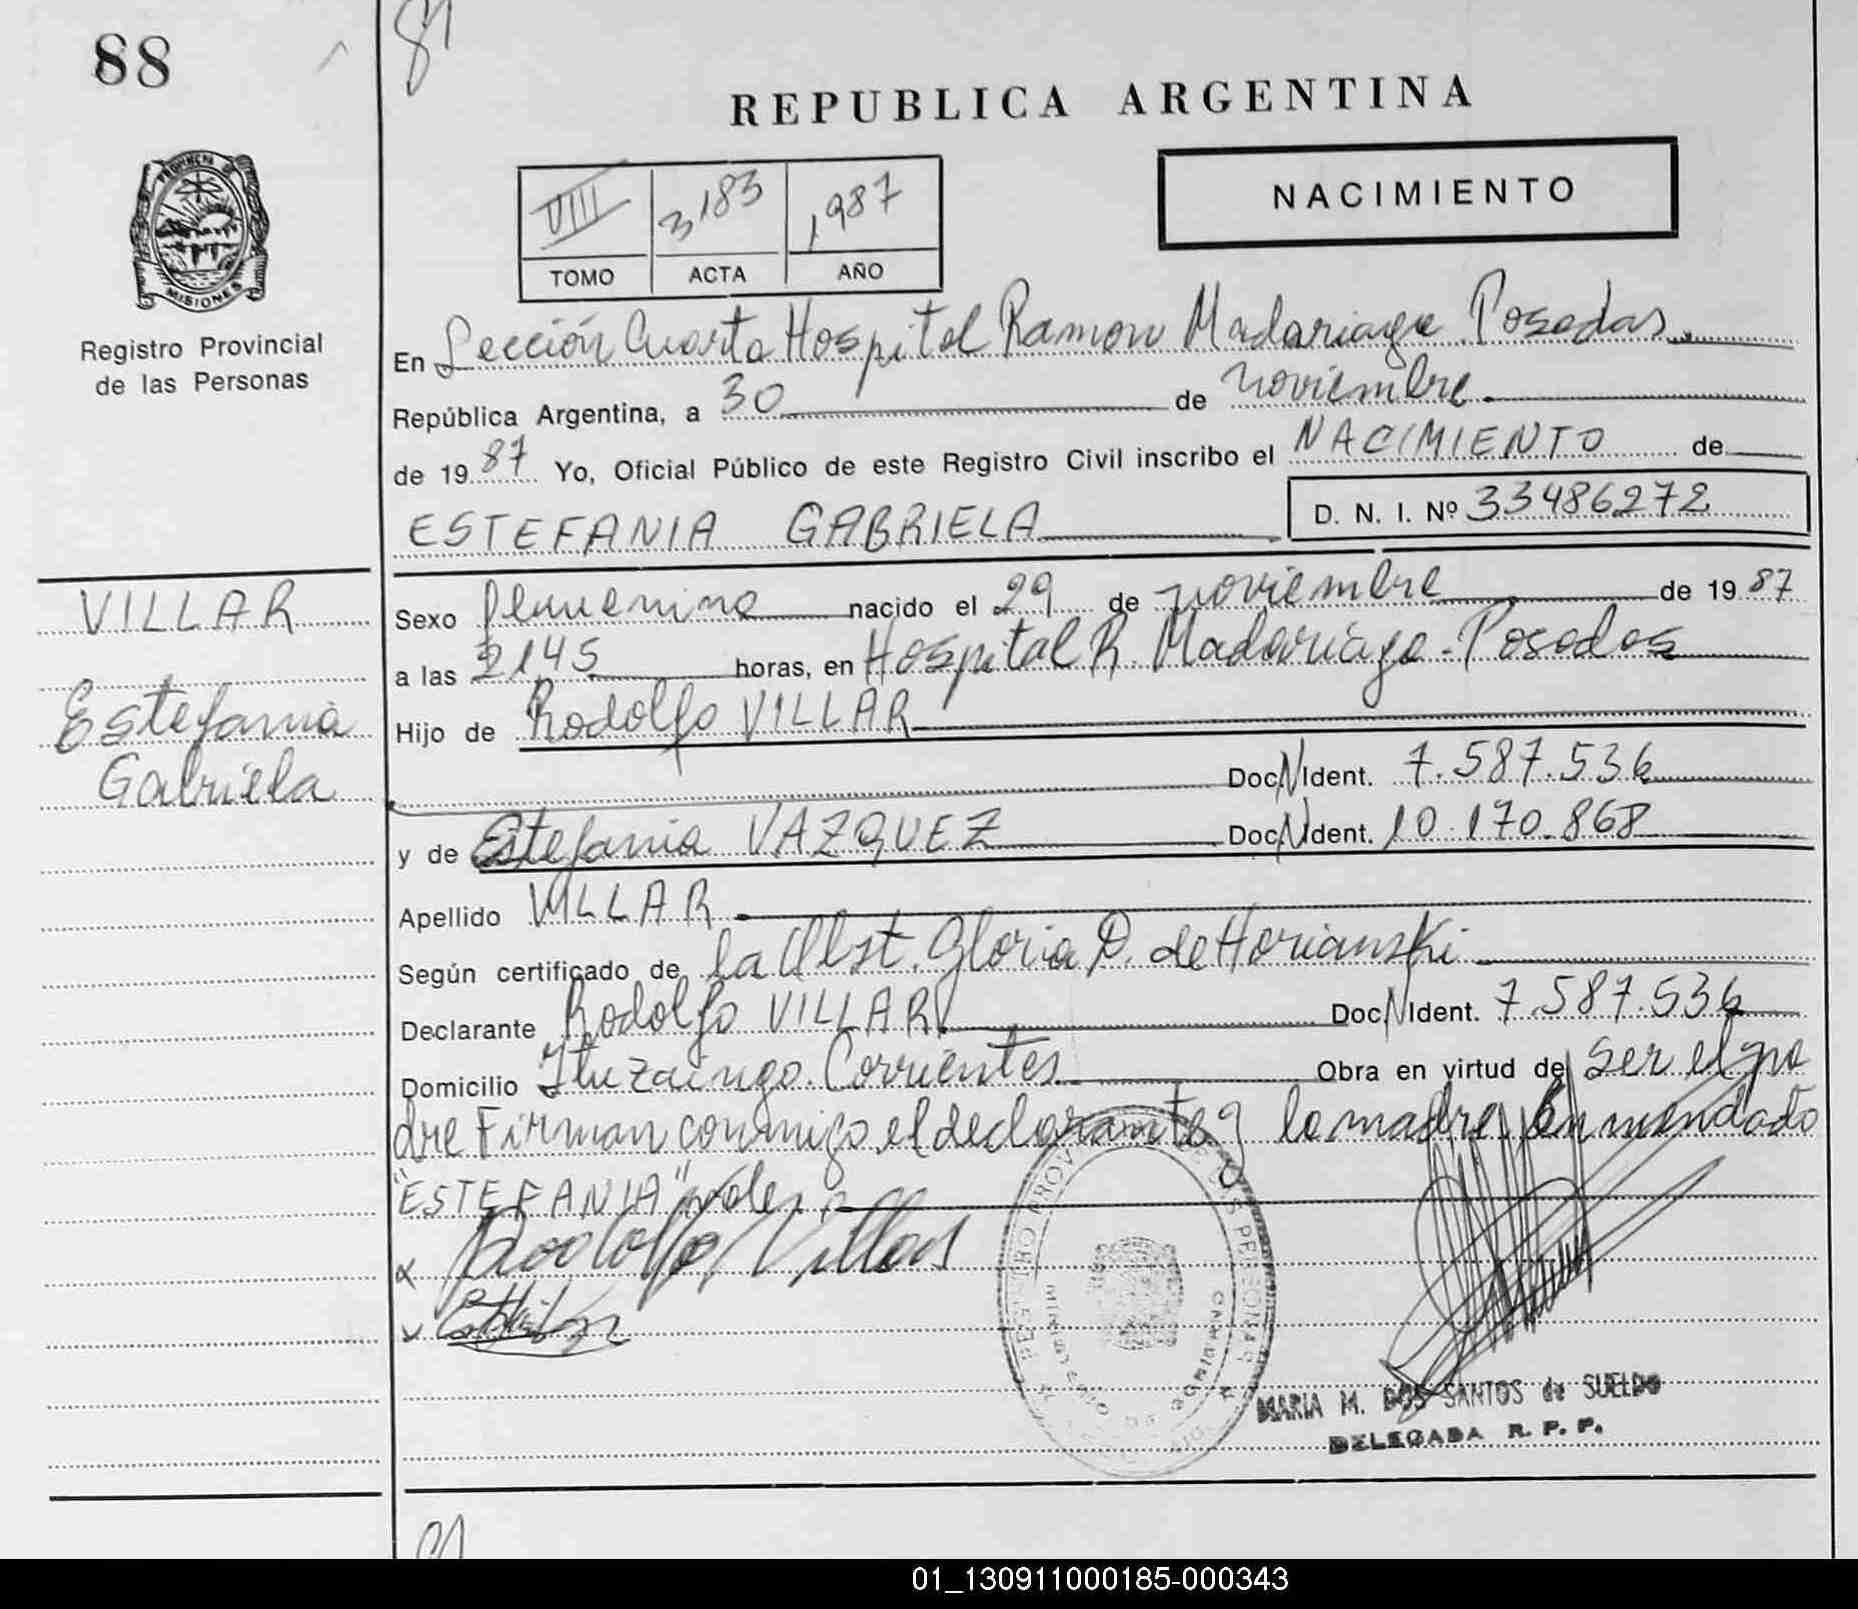 88
REPUBLICA ARGENTINA
PROVINCIA DE MISIONES
Registro Provincial
de las Personas
VIII 3183 1987
TOMO ACTA AÑO
NACIMIENTO
En Sección Cuarta Hospital Ramon Madariaga. Posadas.
República Argentina, a 30 de noviembre
de 19 87 Yo, Oficial Público de este Registro Civil inscribo el NACIMIENTO de
ESTEFANIA GABRIELA D. N. I. Nº 33486272
VILLAR
Estefania
Gabriela
Sexo femenino nacido el 29 de noviembre de 19 87
a las 2145 horas, en Hospital R. Madariaga - Posadas
Hijo de Rodolfo VILLAR
Doc. N Ident. 7.587.536
y de Estefania VAZQUEZ Doc. N Ident. 10.170.868
Apellido VILLAR
Según certificado de la Obst. Gloria D. de Horianski
Declarante Rodolfo VILLAR Doc. N Ident. 7.587.536
Domicilio Ituzaingo. Corrientes Obra en virtud de ser el pa
dre Firman conmigo el declarante y la madre. Enmendado
"ESTEFANIA" vale.
Rodolfo Villar
MARIA M. DOS SANTOS de SUELDO
DELEGADA R. P. P.
01_130911000185-000343